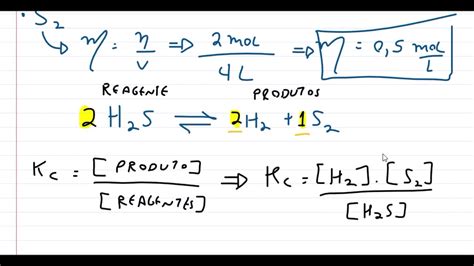 • S₂
↳ η = η/V ⇒ 2 mol/4 L ⇒ η = 0,5 mol/L
REAGENTE PRODUTOS
2 H₂S ⇌ 2 H₂ + 1 S₂
Kc = [PRODUTO]/[REAGENTES] ⇒ Kc = [H₂] . [S₂]/[H₂S]